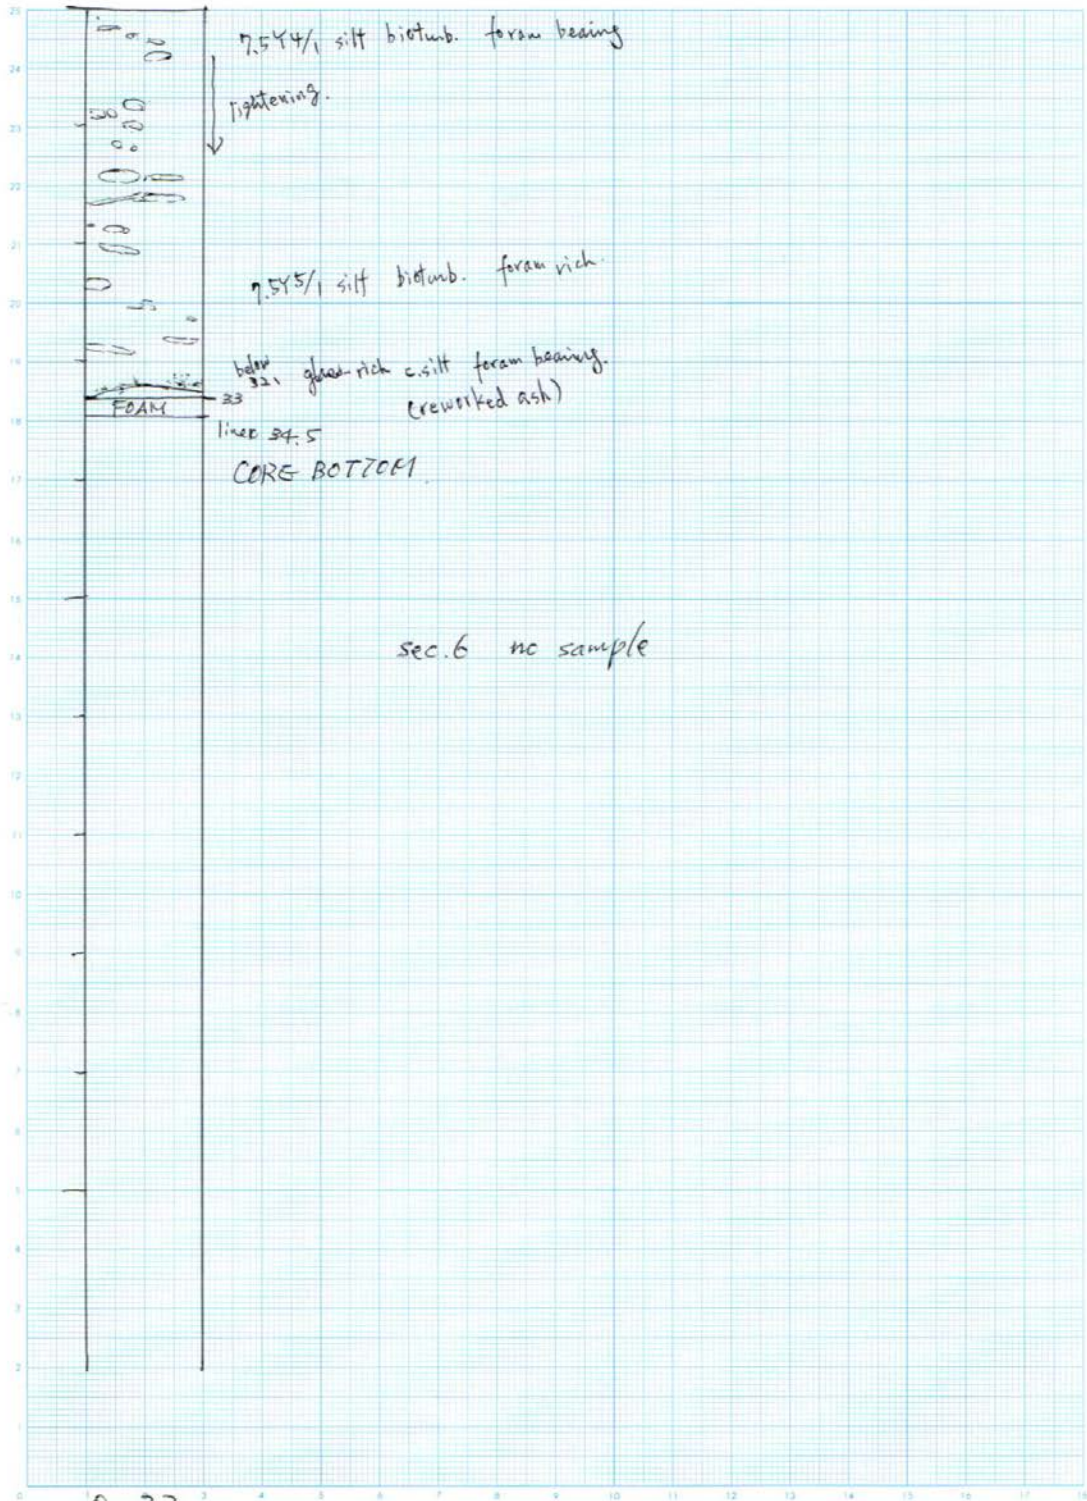 7.5Y4/1 silt bioturb. foram bearing
lightening.
7.5Y5/1 silt bioturb. foram rich.
below 32, glass-rich c.silt foram bearing.
33
(reworked ash)
FOAM
liner 34.5
CORE BOTTOM
sec.6 no sample
25
24
23
22
21
20
19
18
17
16
15
14
13
12
11
10
9
8
7
6
5
4
3
2
1
0 1 3 4 5 6 7 8 9 10 11 12 13 14 15 16 17 18